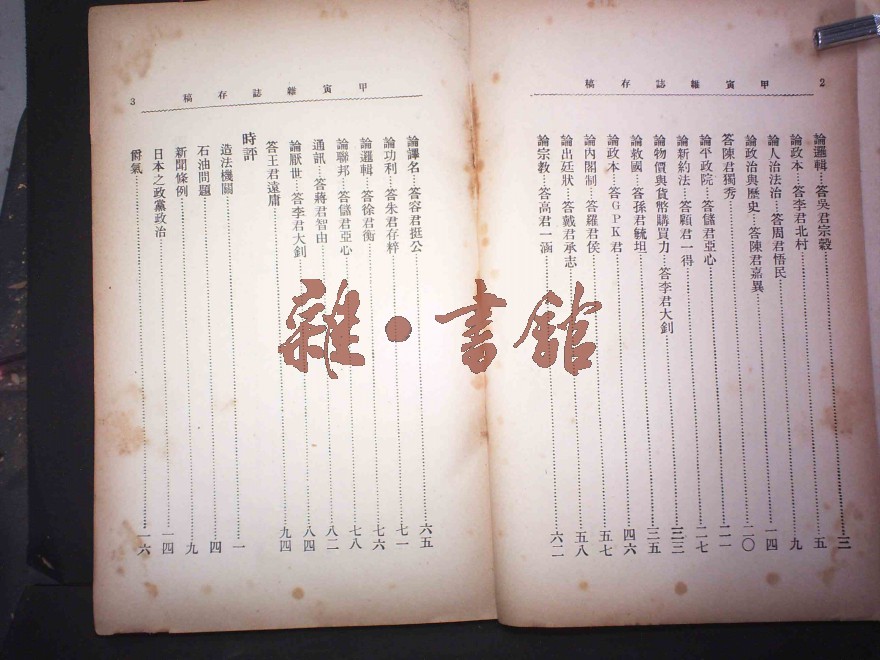 2 甲寅雜誌存稿
論邏輯…答吳君宗穀……三
論政本…答李君北村……五
論人治法治…答周君悟民……九
論政治與歷史…答陳君嘉異……一四
答陳君獨秀……二〇
論平政院…答儲君亞心……二一
論新約法…答顧君一得……二七
論物價與貨幣購買力…答李君大釗……三三
論救國…答孫君毓坦……三五
論政本…答GPK君……四六
論內閣制…答羅君侯……五七
論出廷狀…答戴君承志……五八
論宗教…答高君一涵……六二
甲寅雜誌存稿 3
論譯名…答容君挺公……六五
論功利…答朱君存粹……七一
論邏輯…答徐君衡……七六
論聯邦…答儲君亞心……七八
通訊…答蔣君智由……八二
論厭世…答李君大釗……八四
答王君遠庸……九四
時評
造法機關……一
石油問題……四
新聞條例……九
日本之政黨政治……一四
氣……一六
雜•書館